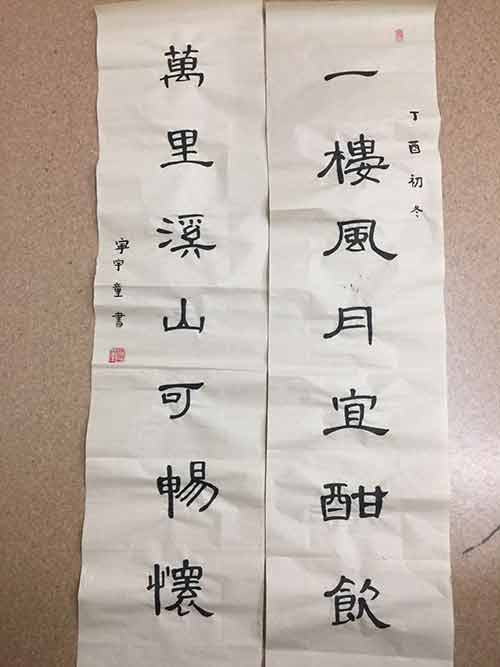 一樓風月宜酣飲
丁酉初冬
萬里溪山可暢懷
寧宇童書